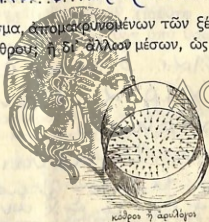 σμα, ἀπομακρυνομένων τῶν ξέ
θρου; ἢ δι' ἄλλων μέσων, ὡς
κόθρος ἢ ἀριλόγος